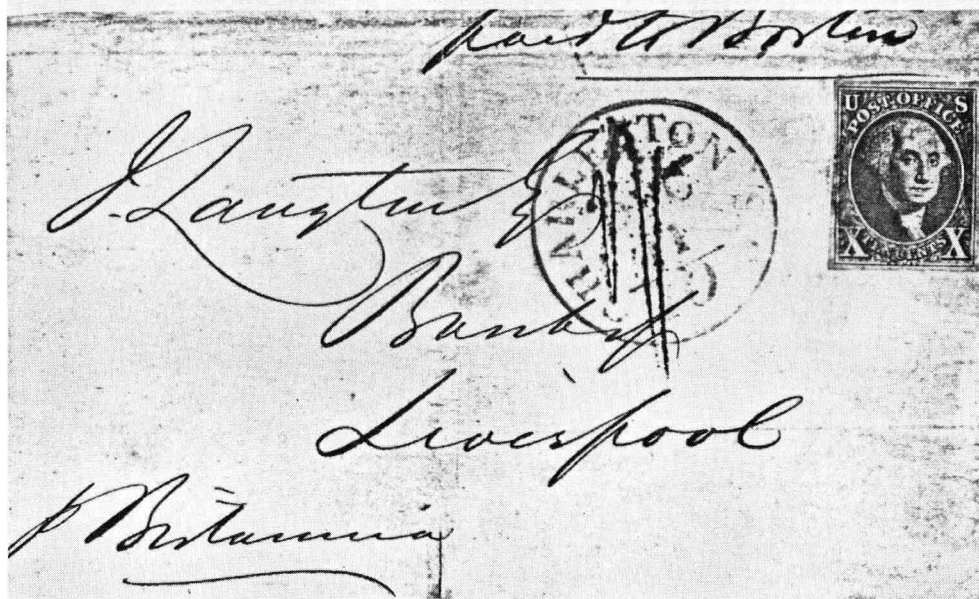 paid to Boston
U S
POST OFFICE
X TEN CENTS X
J. Langton Esq
Liverpool
p Britannia